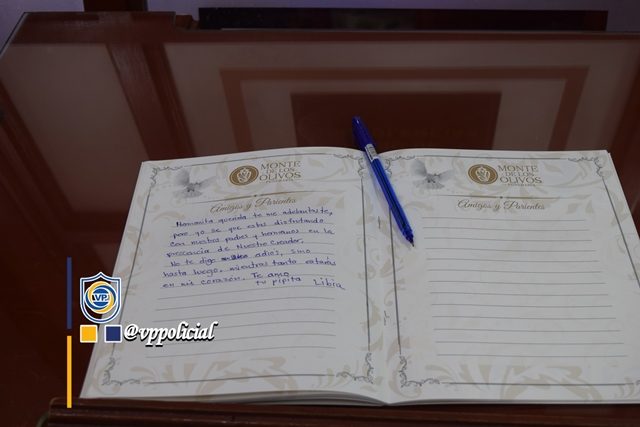 MONTE
DE LOS
OLIVOS
Amigos y Parientes
Hermanita querida te me adelantaste,
pero yo se que estas disfrutando
con nuestros padres y hermanos en la
presencia de Nuestro Creador,
No te digo adios, sino
hasta luego, mientras tanto estarás
en mi corazón. Te amo
tu pipita Libia
MONTE
DE LOS
OLIVOS
Amigos y Parientes
VP
@vppolicial